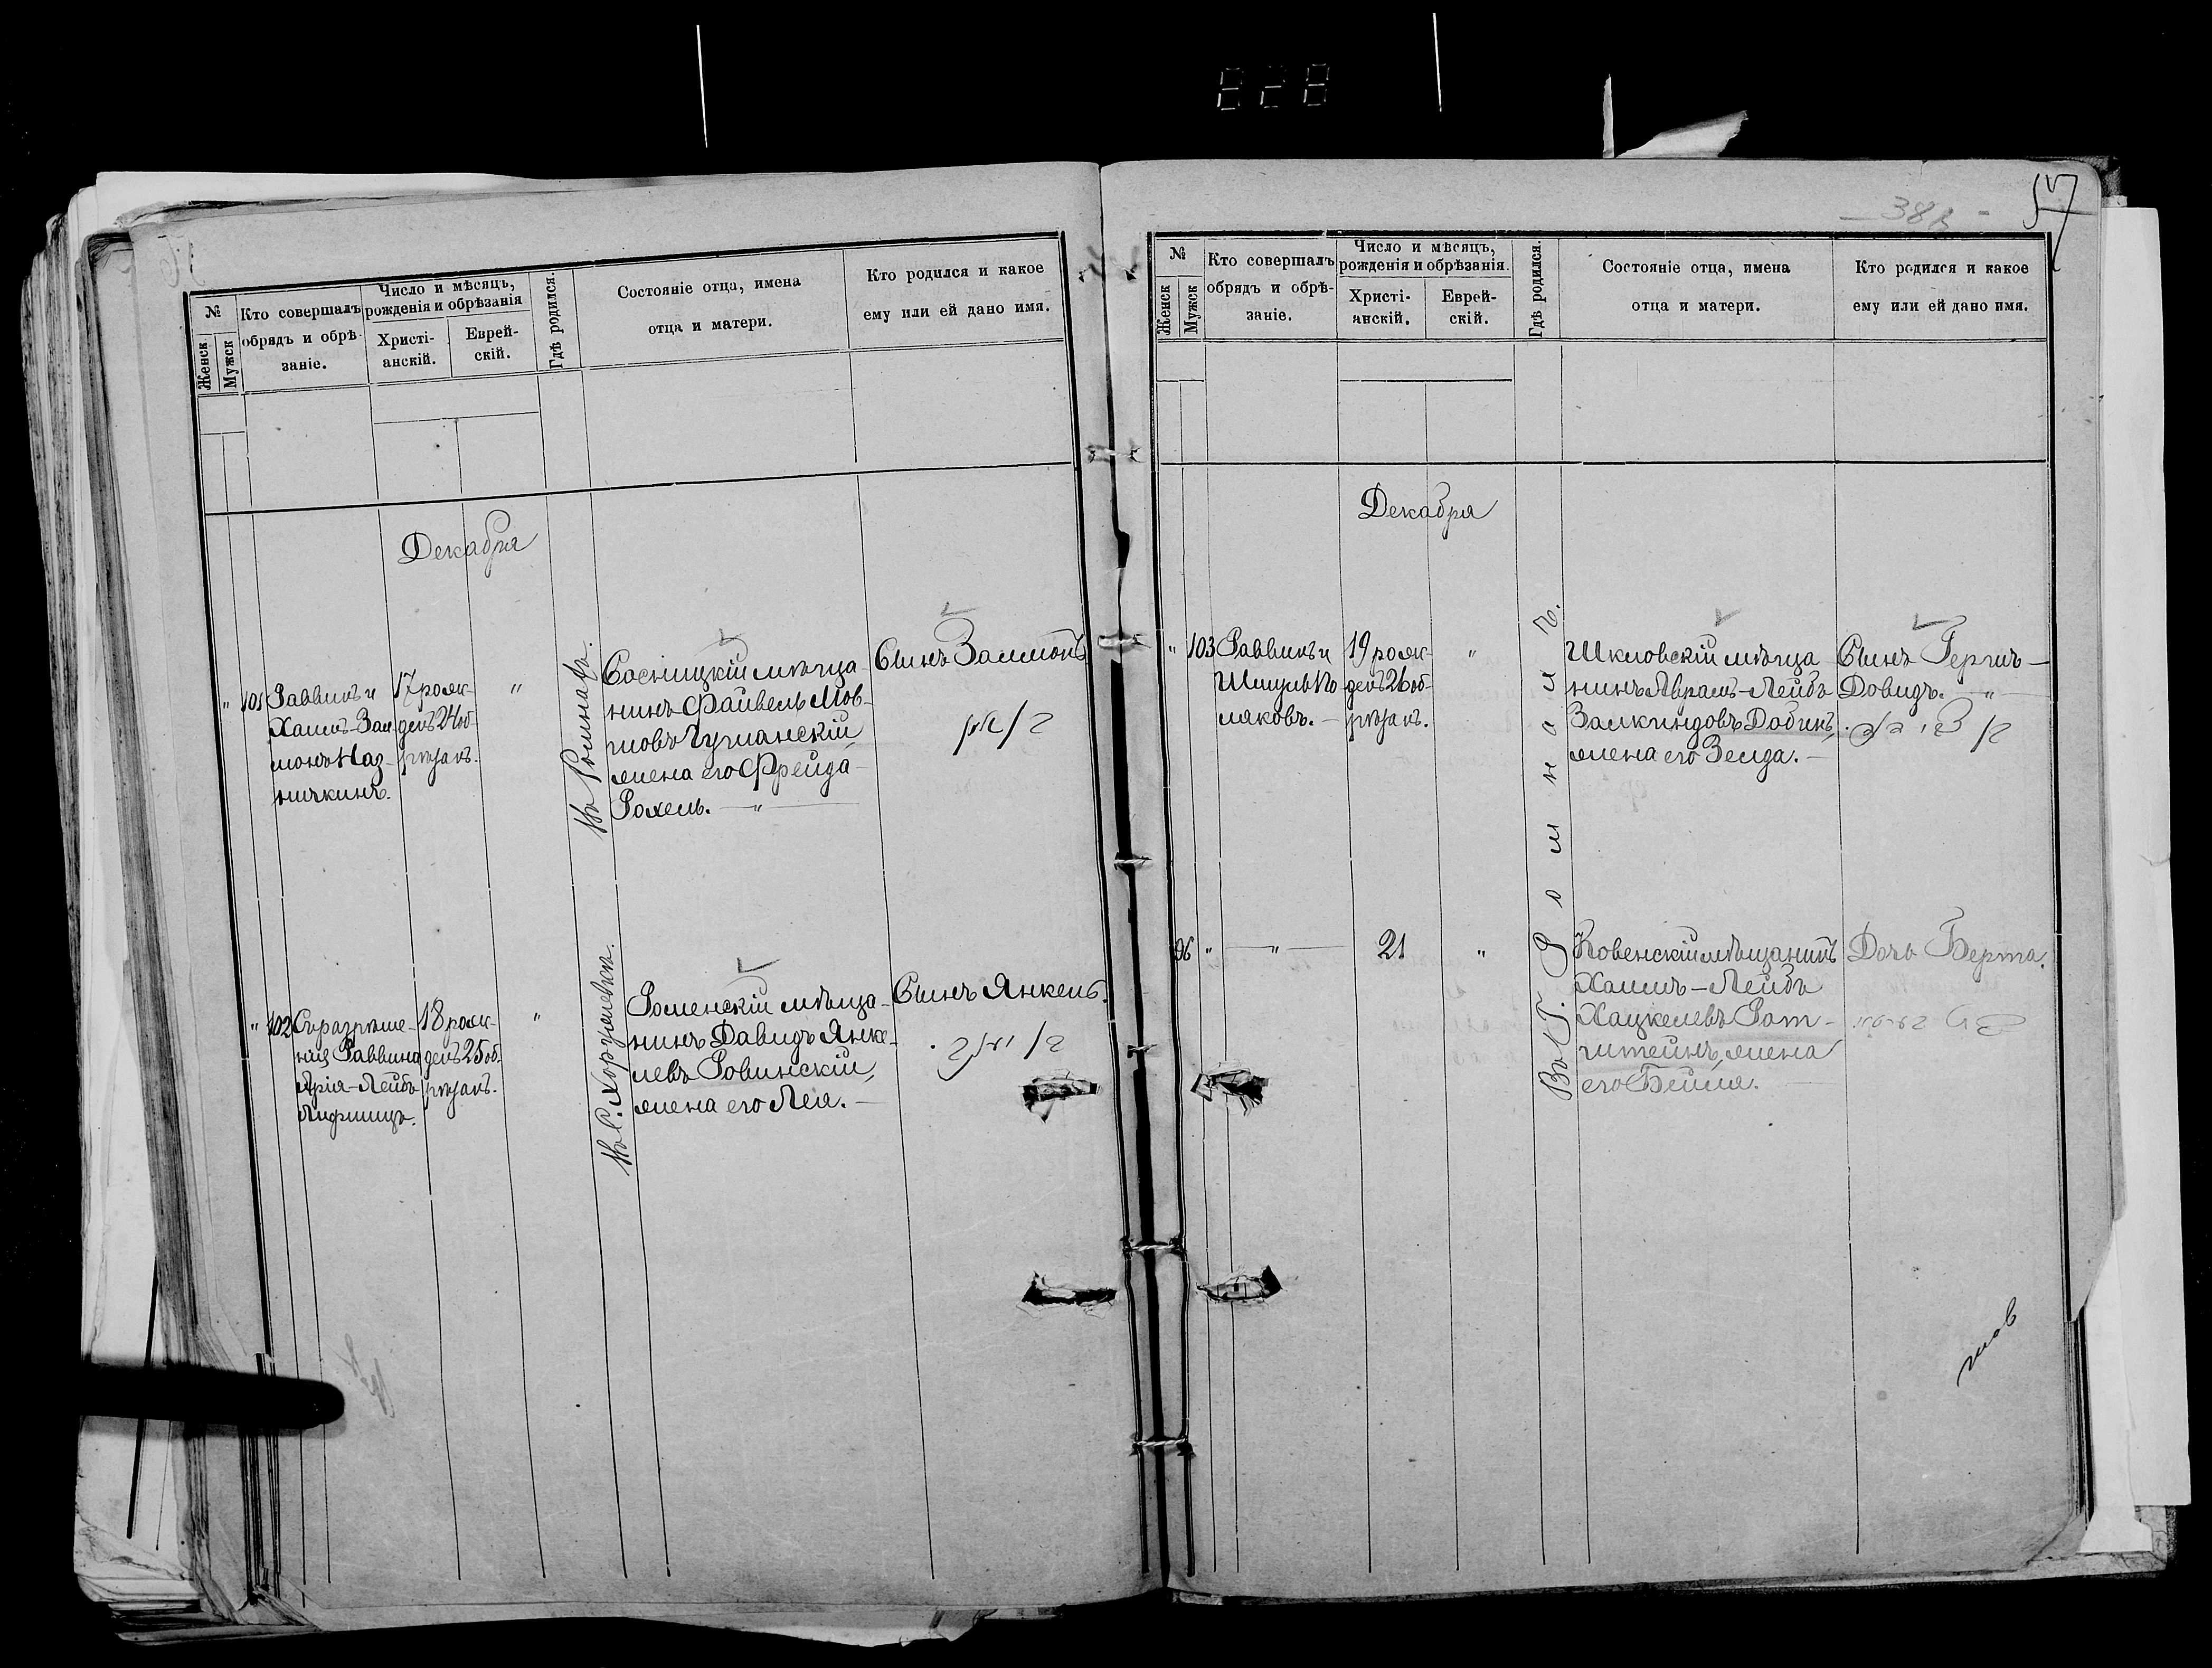 828
№
Женск
Мужск
Кто совершалъ
обрядъ и обрѣ-
заніе.
Число и мѣсяцъ,
рожденія и обрѣзанія
Христі-
анскій.
Еврей-
скій.
Гдѣ родился.
Состояніе отца, имена
отца и матери.
Кто родился и какое
ему или ей дано имя.
Декабря
" 101
Раввинъ и
Хаимъ-Зал
монъ Наз-
ничкинъ.
17 рож-
денъ 24 об-
рѣзанъ.
"
Въ Ромнахъ.
Сосницкій мѣща-
нинъ Файвель Мов-
шовъ
жена его Фрейда-
Рохель. — " —
Сынъ Залмонъ
" 102
Съ разрѣше-
нія Раввина
Арія-Лейбъ
Лифшицъ.
18 рож-
денъ 25 об-
рѣзанъ.
"
Въ С. Хоружевкѣ.
Роменскій мѣща-
нинъ Давидъ Янке-
левъ Ровинскій,
жена его Лея. —
Сынъ Янкель.
38
57
№
Женск
Мужск
Кто совершалъ
обрядъ и обрѣ-
заніе.
Число и мѣсяцъ,
рожденія и обрѣзанія.
Христі-
анскій.
Еврей-
скій.
Гдѣ родился.
Состояніе отца, имена
отца и матери.
Кто родился и какое
ему или ей дано имя.
Декабря
" 103
Раввинъ и
Шмуль По
ляковъ. —
19 рож-
денъ 26 об-
рѣзанъ.
"
Въ Г. Ромнахъ.
Шкловскій мѣща
нинъ Аврамъ-Лейбъ
Залкиндовъ Добинъ,
жена его Зелда. —
Сынъ Гершъ —
Довидъ. — " —
96 " — " —
21
"
Ковенскій мѣщанинъ
Хаимъ-Лейбъ
Хацкелевъ Рот-
штейнъ, жена
его Бейля.
Дочь Берта.